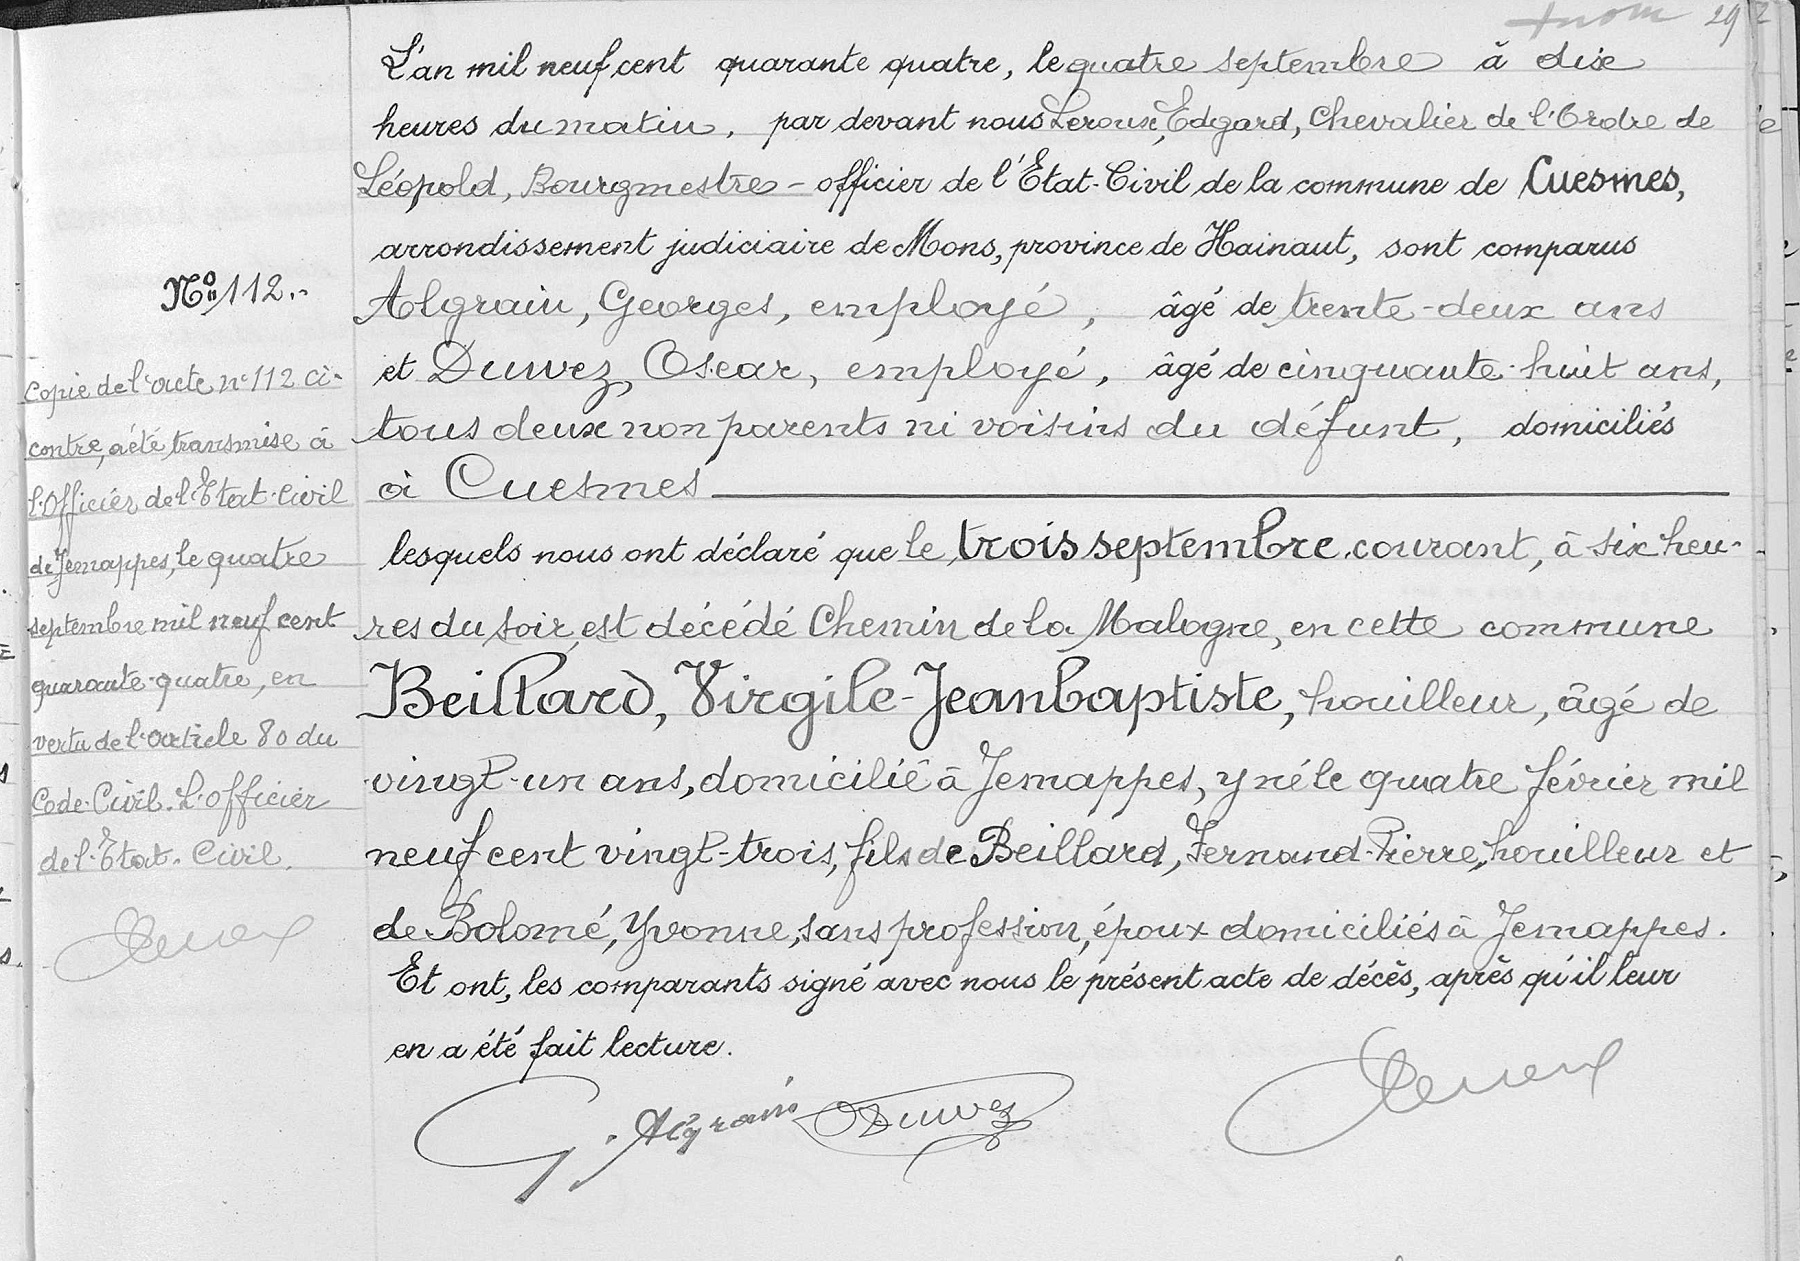 29
L'an mil neuf cent quarante quatre, le quatre septembre à dix
heures du matin, par devant nous Leroux, Edgard, Chevalier de l'Ordre de
Léopold, Bourgmestre - officier de l'Etat-Civil de la commune de Cuesmes,
arrondissement judiciaire de Mons, province de Hainaut, sont comparus
Algrain, Georges, employé, âgé de trente-deux ans
et Duwez, Oscar, employé, âgé de cinquante-huit ans,
tous deux non parents ni voisins du défunt, domiciliés
à Cuesmes
lesquels nous ont déclaré que le trois septembre courant, à six heu-
res du soir, est décédé Chemin de la Malogne, en cette commune
Beillard, Virgile-Jeanbaptiste, houilleur, âgé de
vingt-un ans, domicilié à Jemappes, y né le quatre février mil
neuf cent vingt-trois, fils de Beillard, Fernand-Pierre, houilleur et
de Bolomé, Yvonne, sans profession, époux domiciliés à Jemappes.
Et ont, les comparants signé avec nous le présent acte de décès, après qu'il leur
en a été fait lecture.
G. Algrain ODuwez Leroux
No 112.
Copie de l'acte n° 112 ci-
contre, a été transmise à
l'Officier de l'Etat-Civil
de Jemappes, le quatre
septembre mil neuf cent
quarante-quatre, en
vertu de l'article 80 du
Code-Civil. L'officier
de l'Etat-Civil.
Leroux